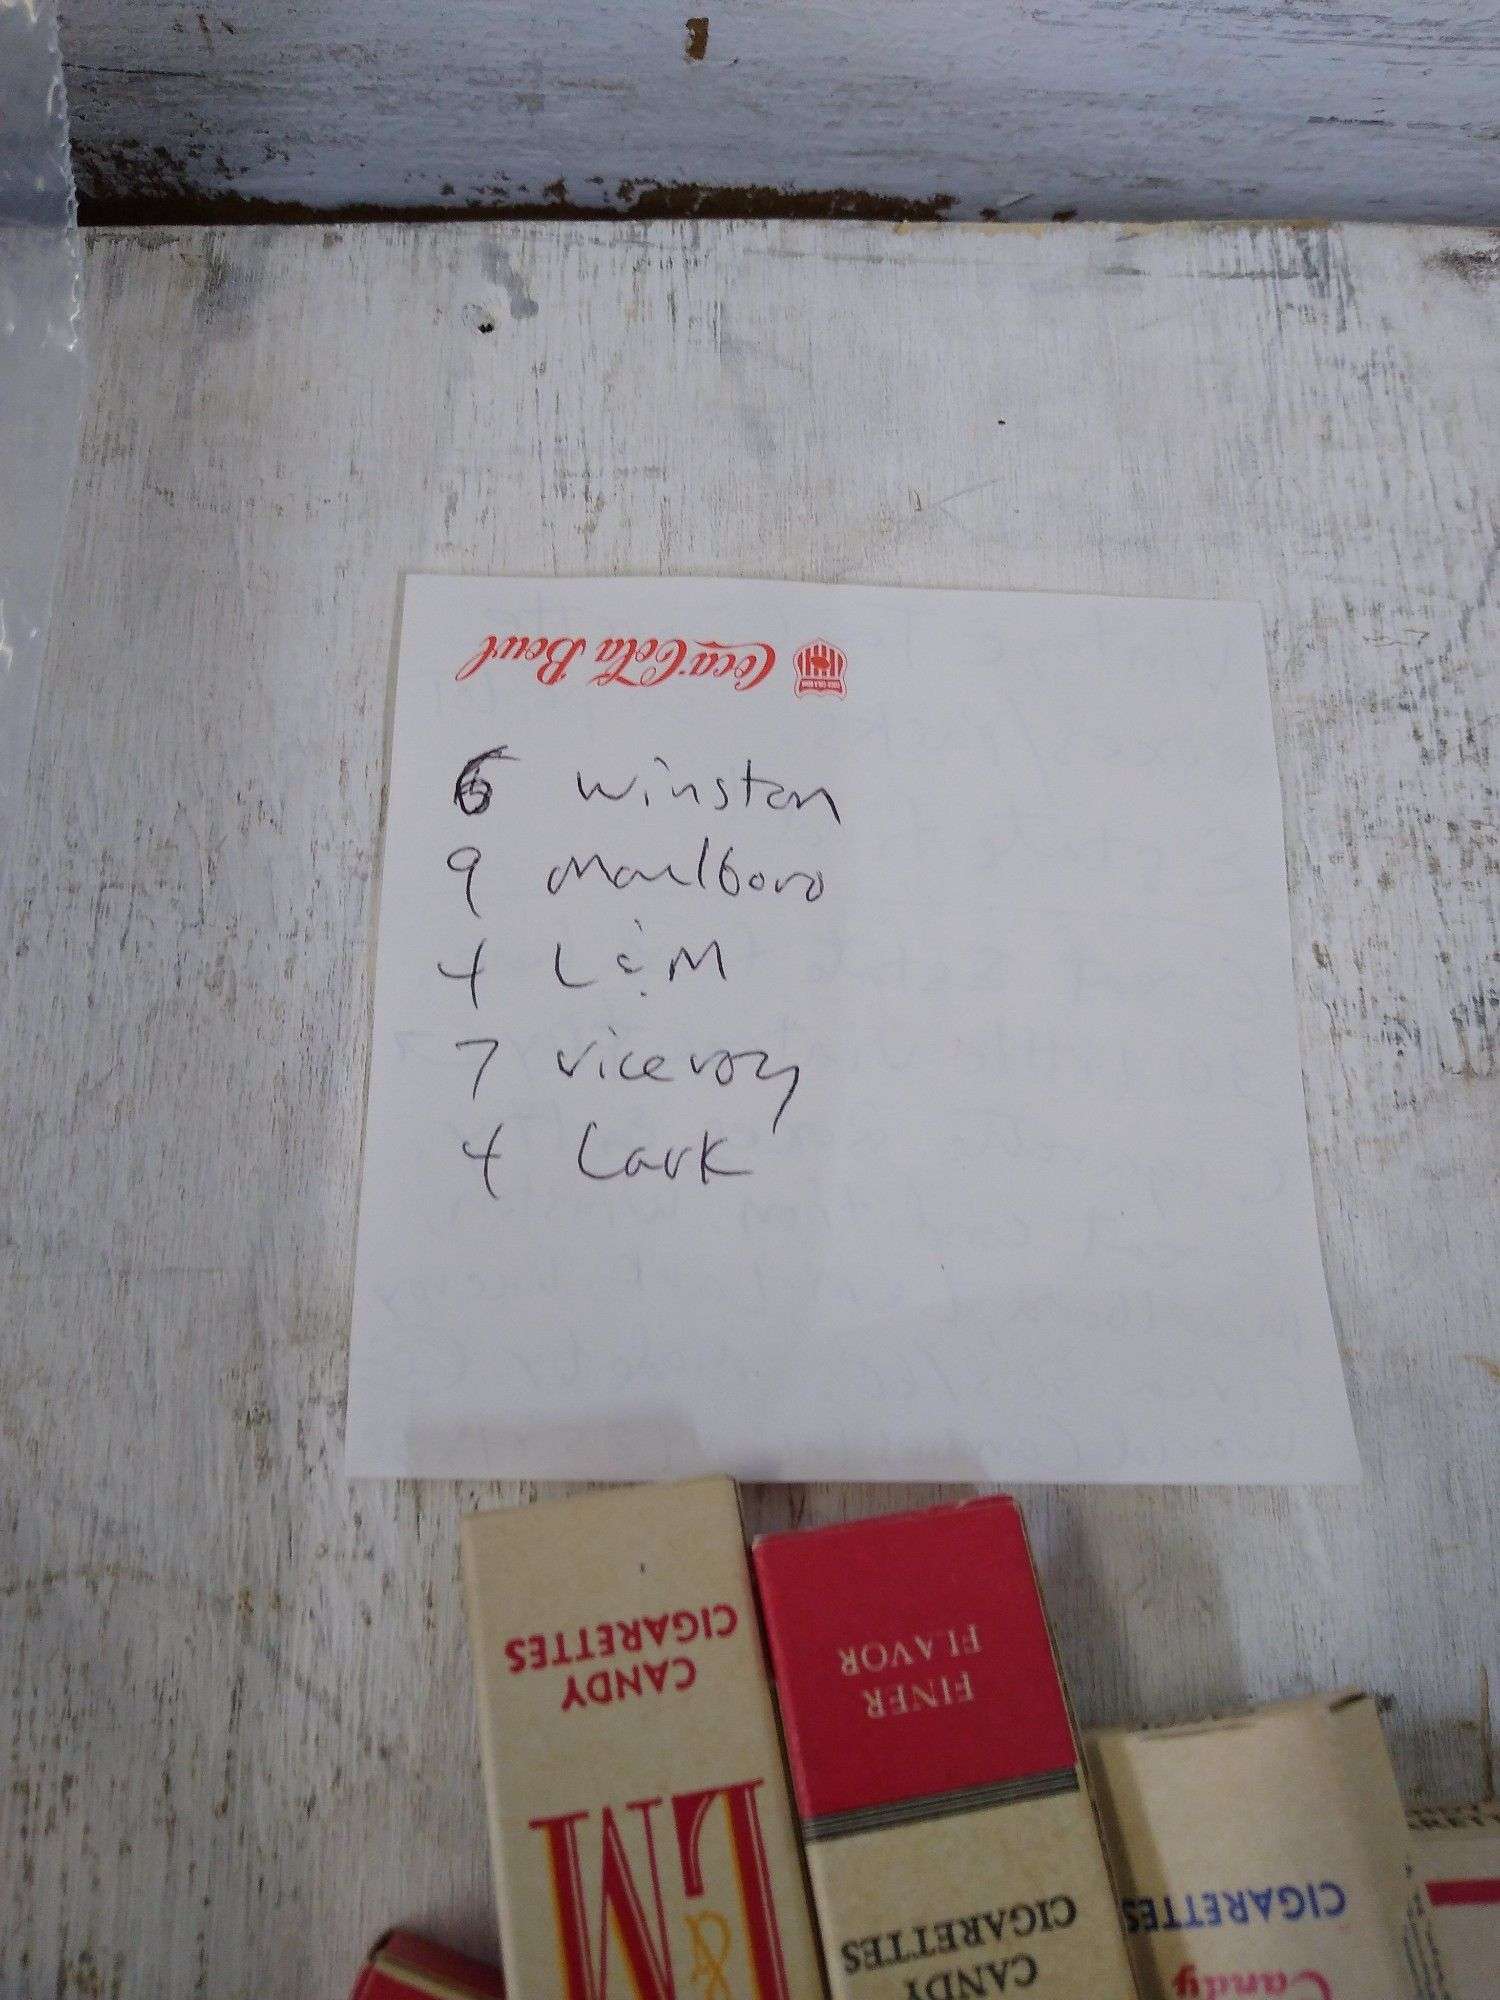 Coca-Cola Bowl
6 Winston
9 Marlboro
4 L & M
7 Viceroy
4 Lark
CANDY
CIGARETTES
L&M
FINER
FLAVOR
CANDY
CIGARETTES
Candy
CIGARETTES